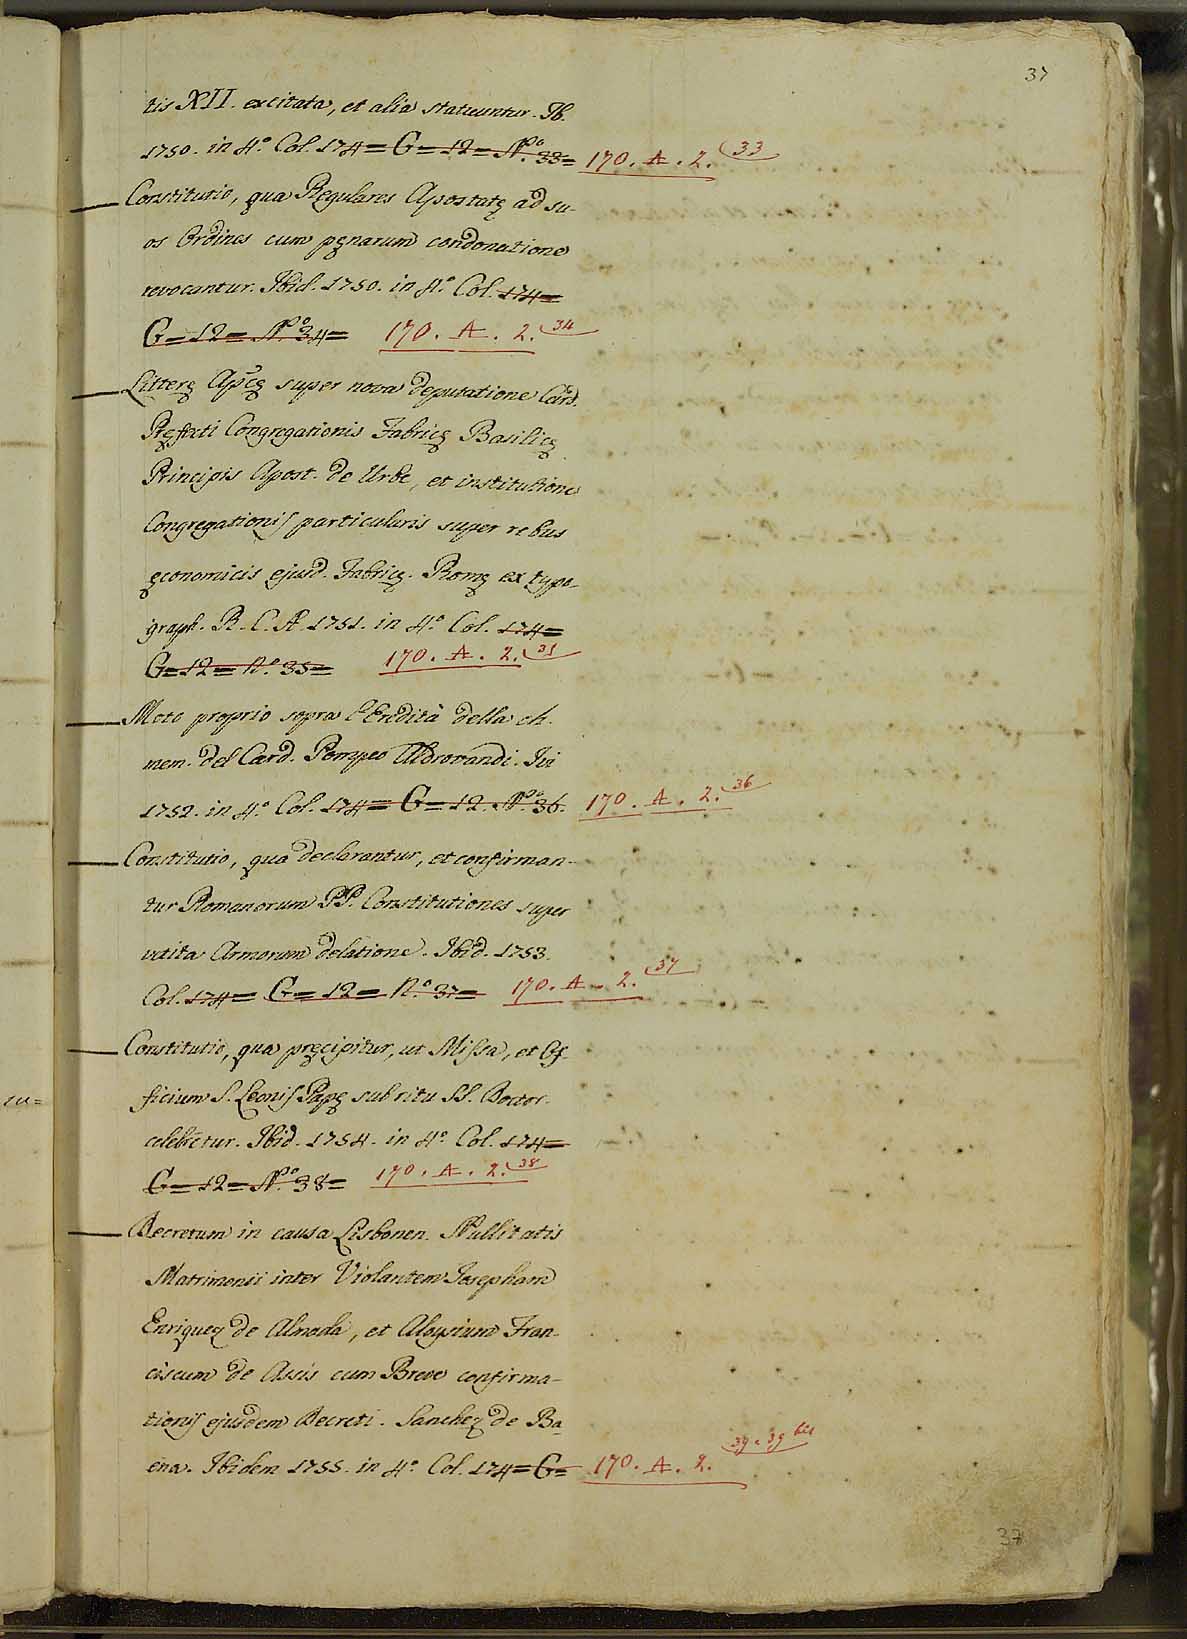 37
tis XII. excitata, et alia statuuntur. Ib.
1750. in 4.º Col. 174 = G = 12 = N.º 33 = 170. A. 2. 33
Constitutio, qua Regulares Apostatę ad su-
os Ordines cum pęnarum condonatione
revocantur. Ibid. 1750. in 4.º Col. 174 =
G = 12 = N.º 34 = 170. A. 2. 34
Litterę Apcę super nova deputatione Card.
Pręfecti Congregationis Fabricę Basilicę
Principis Apost. de Urbe, et institutione
Congregationis particularis super rebus
ęconomicis ejusd. Fabricę. Romę ex typo-
graph. R. C. A. 1751. in 4.º Col. 174 =
G = 12 = N.º 35 = 170. A. 2. 35
Moto proprio sopra l'Eredità della ch.
mem. del Card. Pompeo Aldrovandi. Ivi
1752. in 4.º Col. 174 = G = 12. N.º 36. 170. A. 2. 36
Constitutio, qua declarantur, et confirman-
tur Romanorum PP. Constitutiones super
vetita Armorum delatione. Ibid. 1753.
Col. 174 = G = 12 = N.º 37 = 170. A. 2. 37
Constitutio, qua pręcipitur, ut Missa, et Of-
ficium S. Leonis Papę sub ritu SS. Doctor.
celebretur. Ibid. 1754. in 4.º Col. 174 =
G = 12 = N.º 38 = 170. A. 2. 38
Decretum in causa Lisbonen. Nullitatis
Matrimonii inter Violantem Josepham
Enriquez de Almada, et Aloysium Fran-
ciscum de Assis cum Breve confirma-
tionis ejusdem Decreti. Sanchez de Ba-
ena. Ibidem 1755. in 4.º Col. 174 = G = 170. A. 2. 39. 39 bis
37